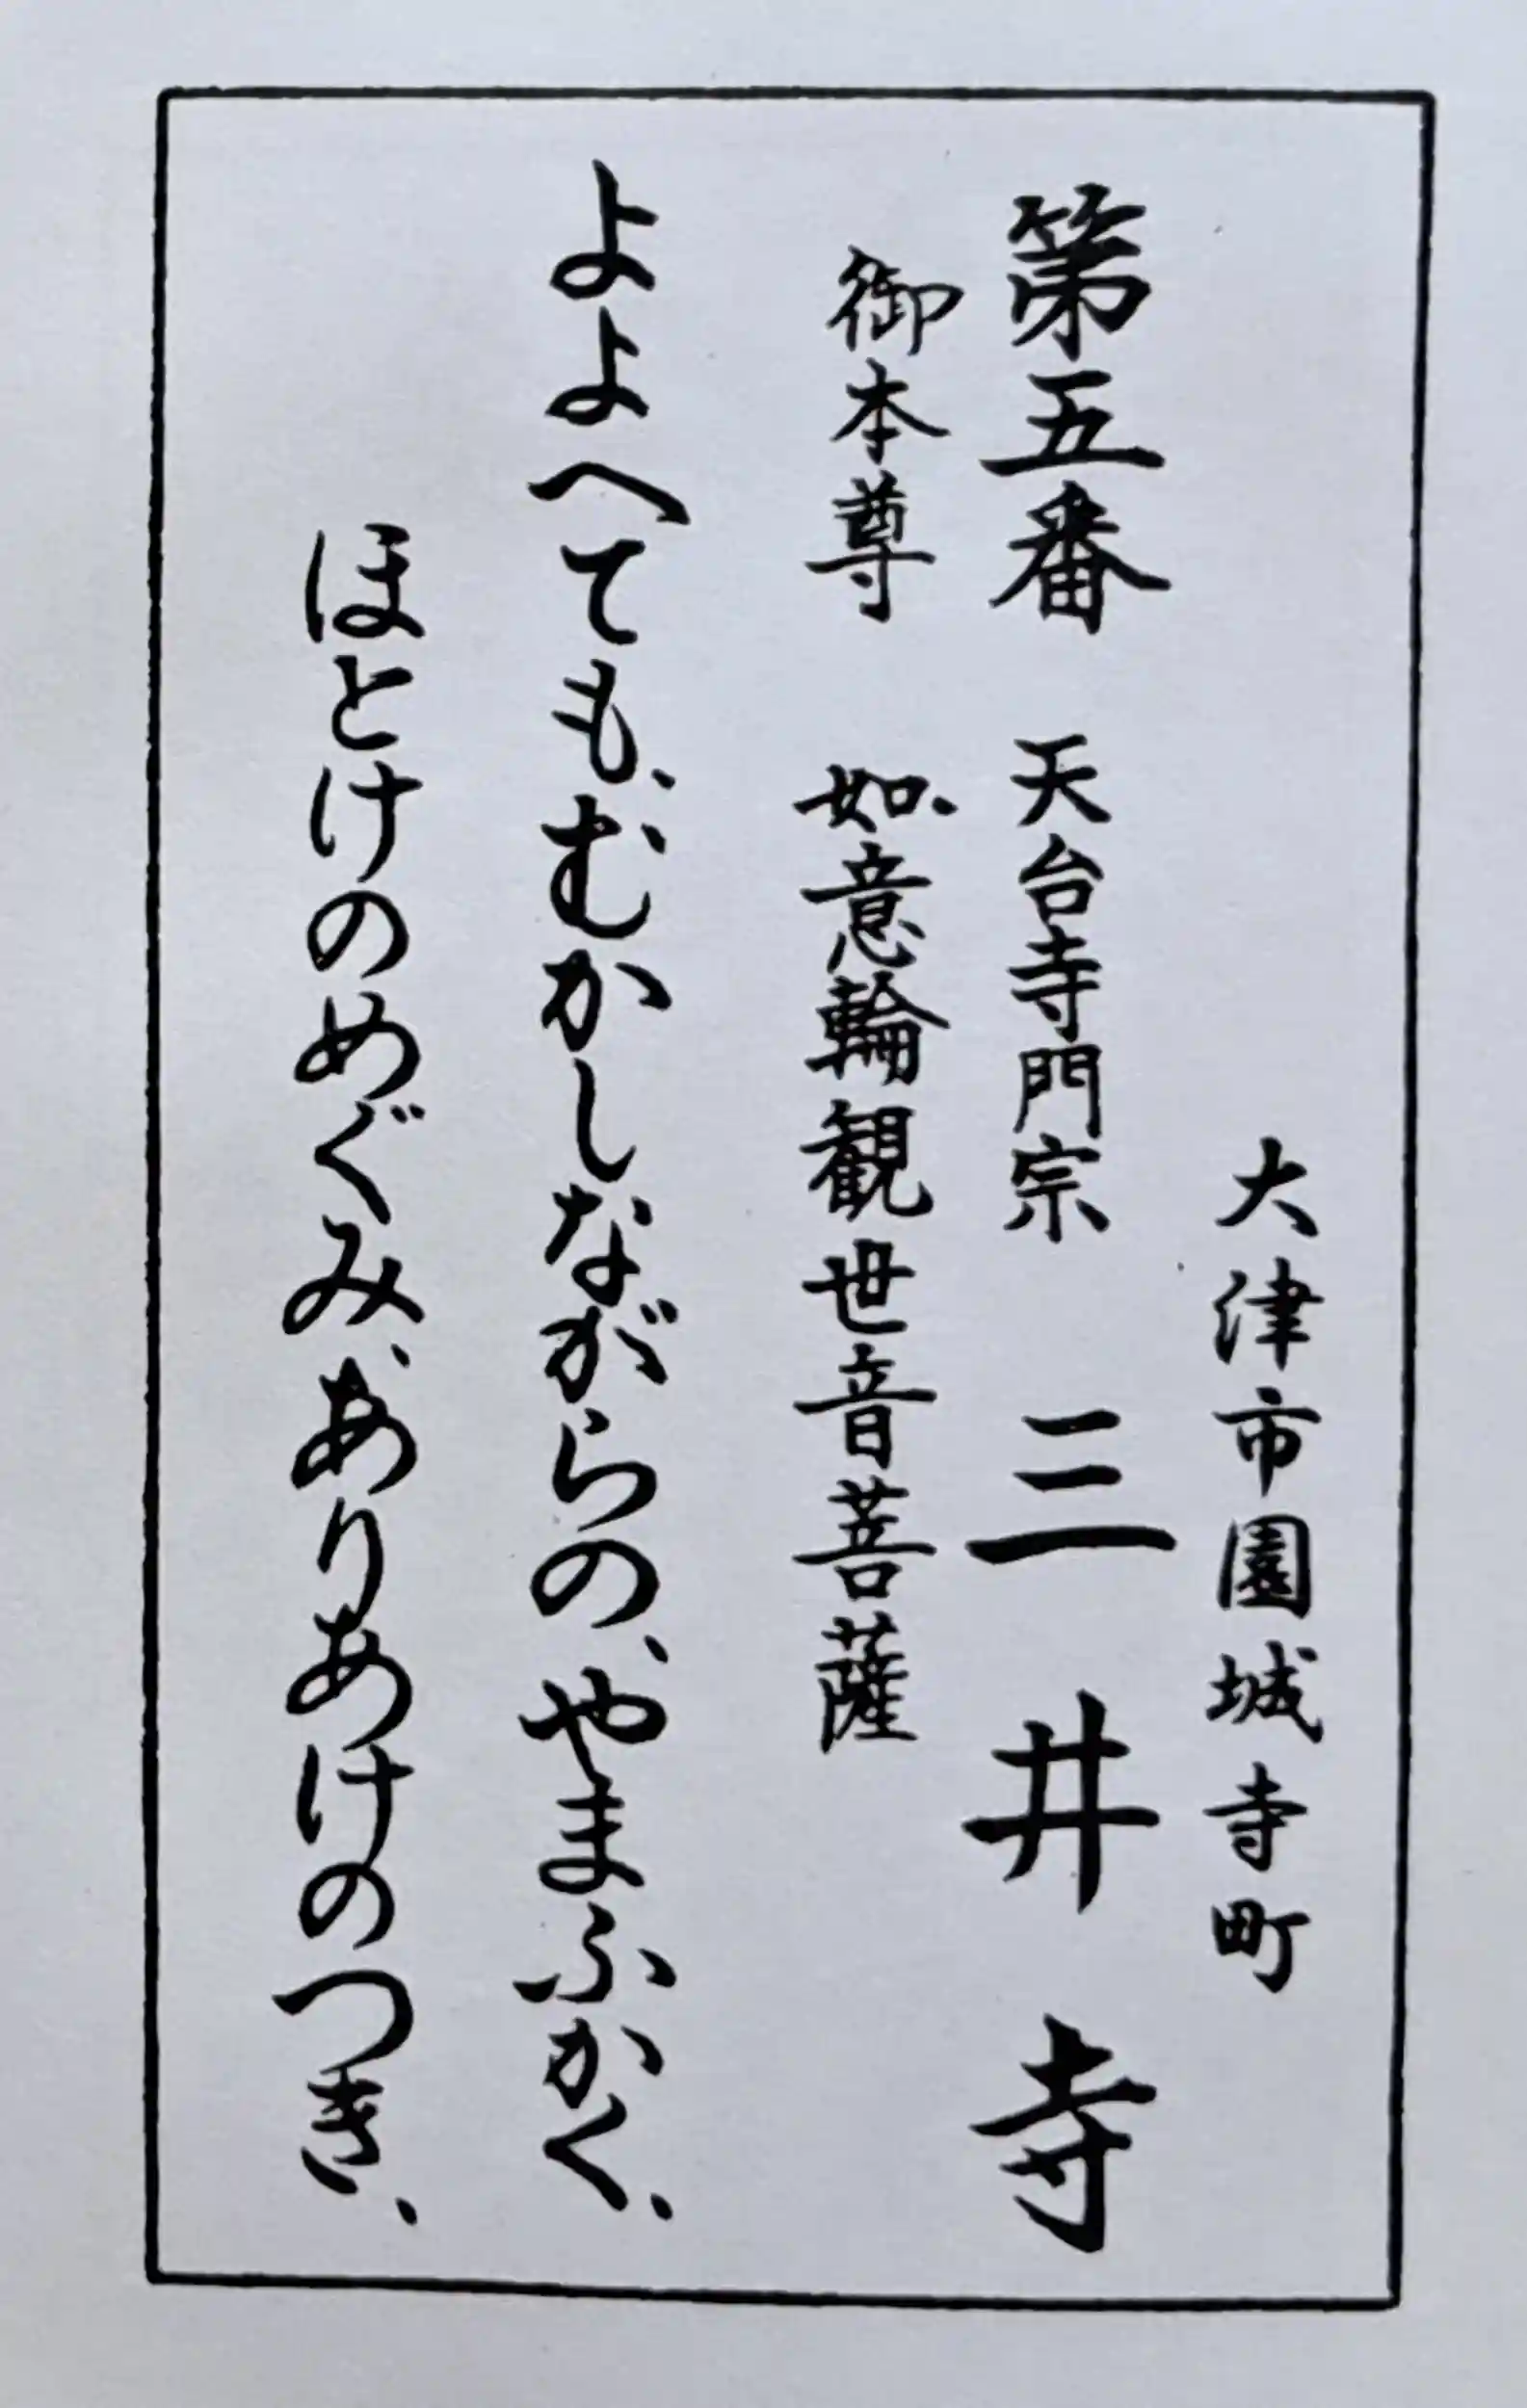 大津市園城寺町
第五番 天台寺門宗 三井寺
御本尊 如意輪観世音菩薩
よよへても、むかしながらの、やまふかく、
ほとけのめぐみ、ありあけのつき、